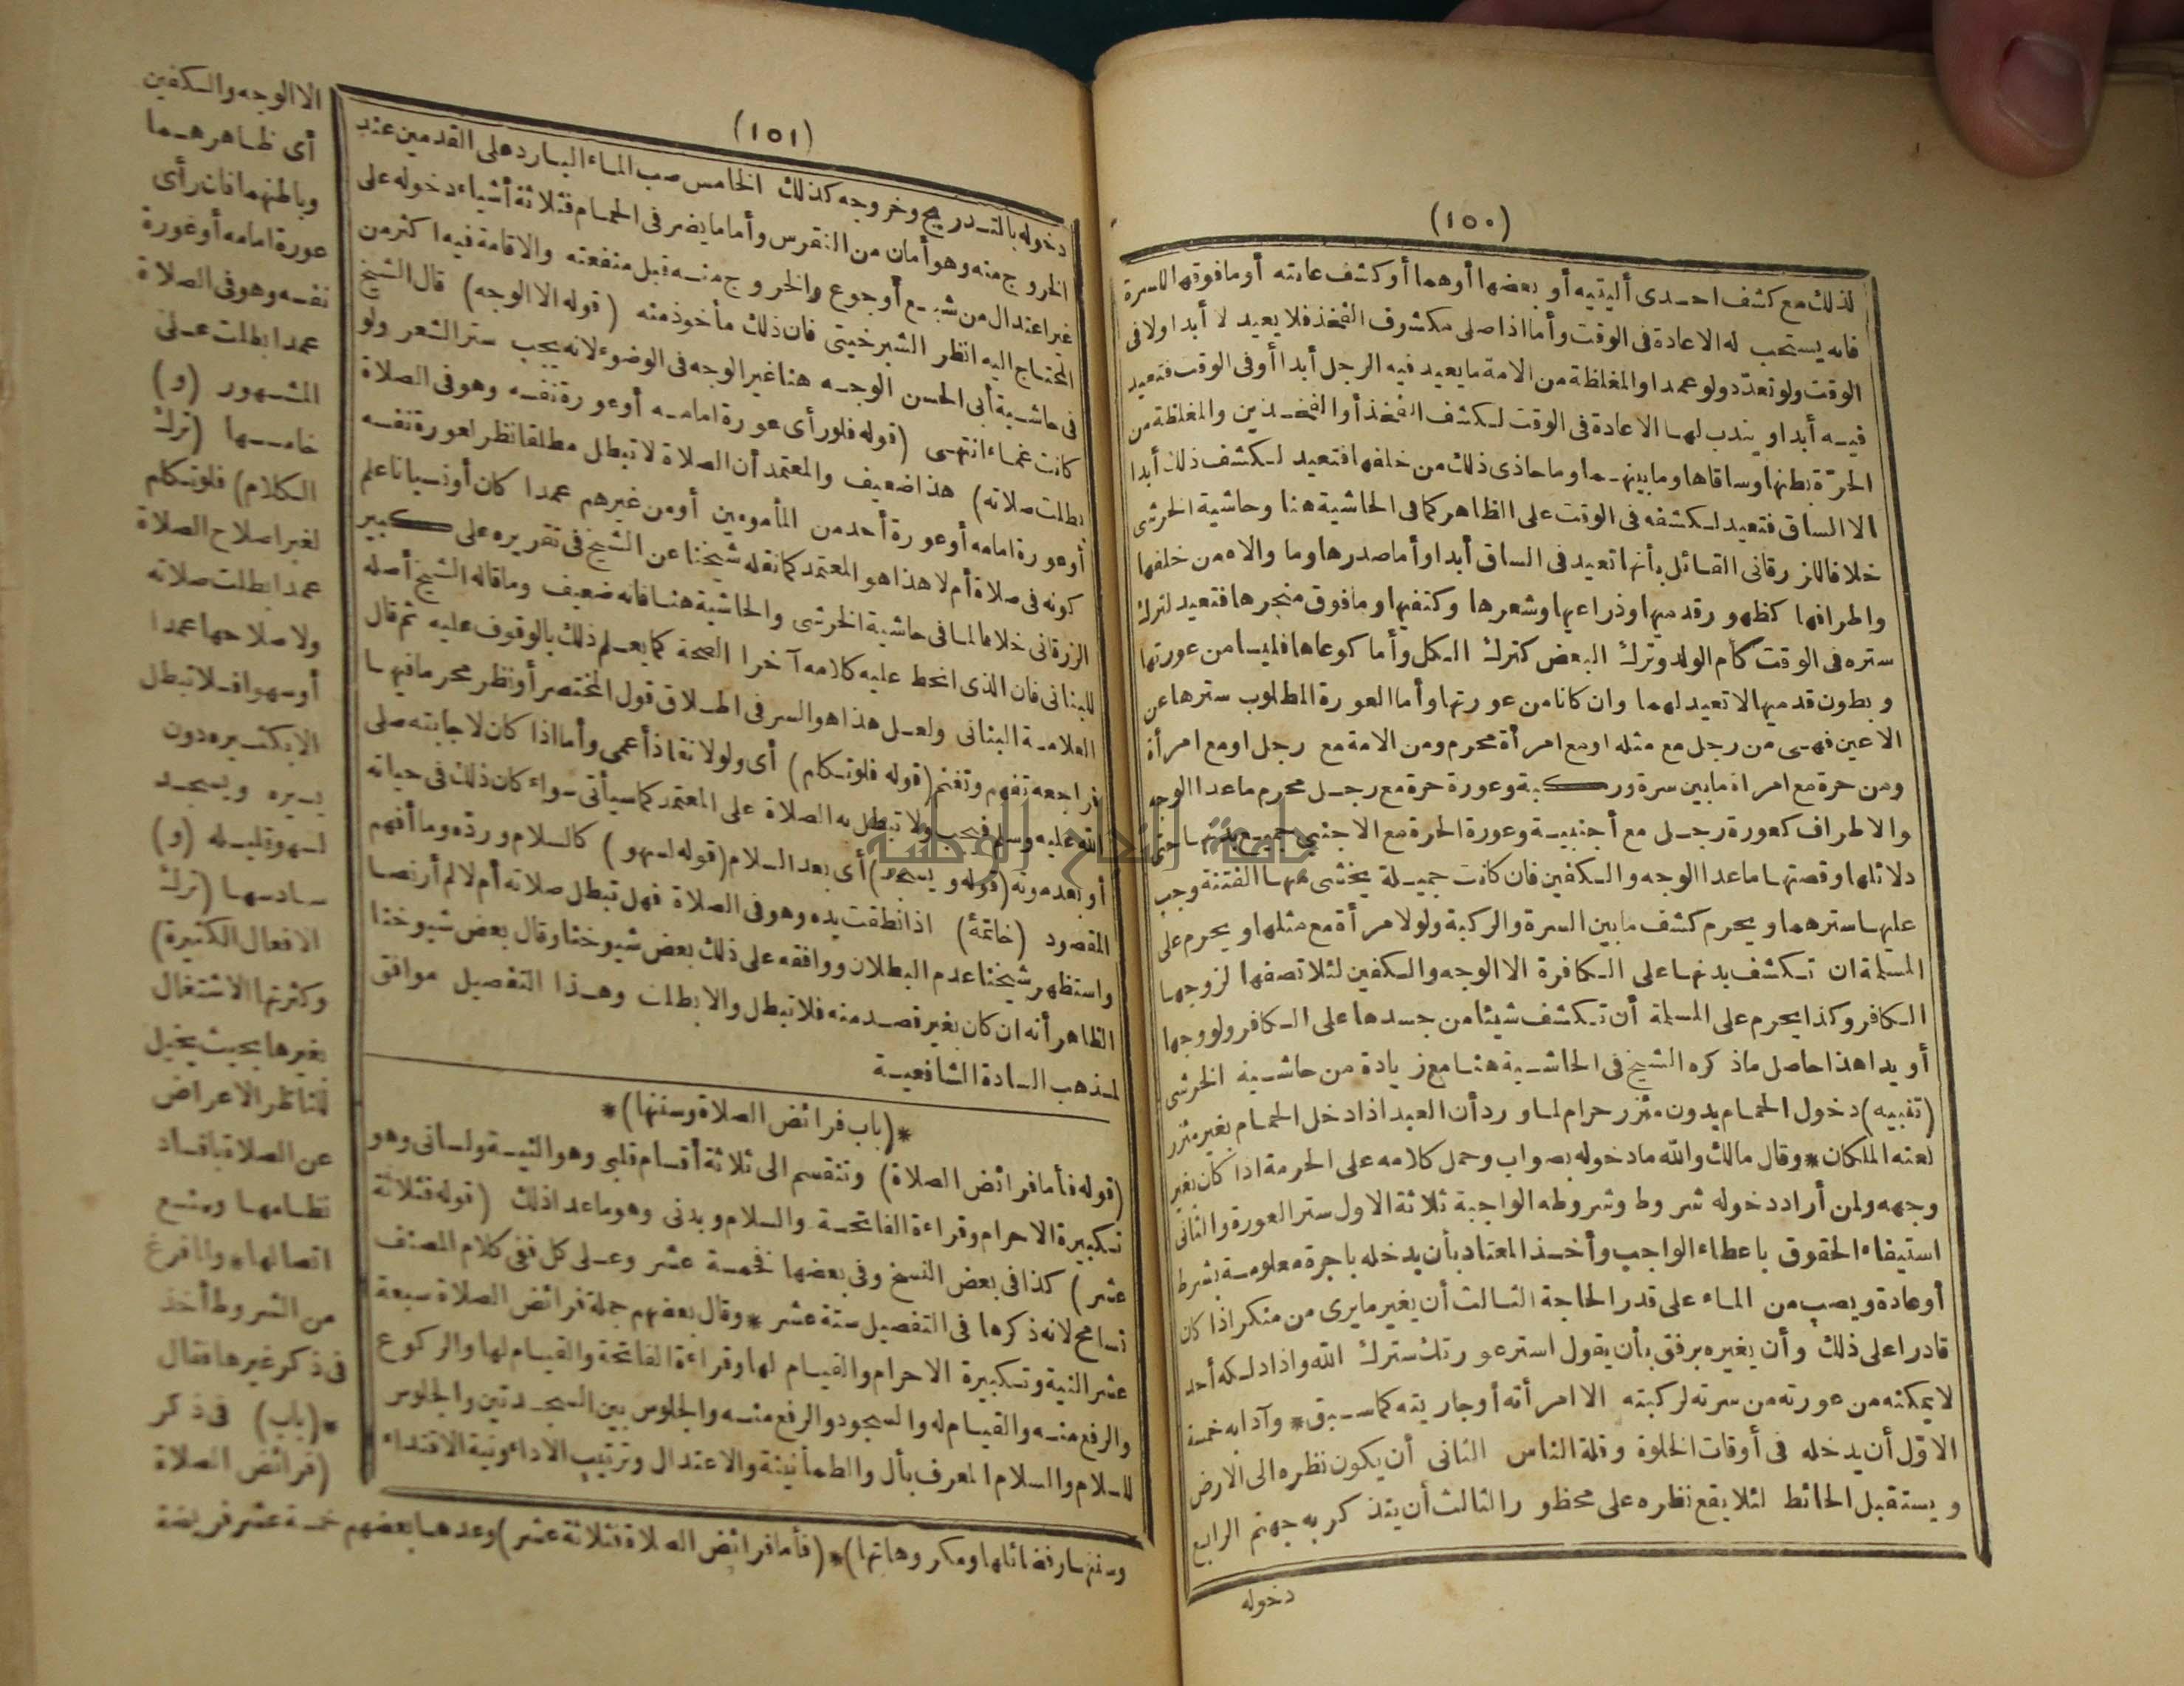 (١٥٠)
لذلك مع كشف احدى أليتيه أو بعضها أو هما أو كشف عانته أو ما فوقها للسرة
فانه يستحب له الاعادة فى الوقت وأما اذا صلى مكشوف الفخذ فلا يعيد لا أبدا ولا فى
الوقت ولو تعدّد ولو عمدا والمغلظة من الامة ما يعيد فيه الرجل أبدا أو فى الوقت فتعيد
فيه أبدا ويندب لها الاعادة فى الوقت لكشف الفخذ أو الفخذين والمغلظة من
الحرّة بطنها وساقاها وما بينهما وما حاذى ذلك من خلفها فتعيد لكشف ذلك أبدا
الا الساق فتعيد لكشفه فى الوقت على الظاهر كما فى الحاشية هنا وحاشية الخرشى
خلافا للزرقانى القائل بأنها تعيد فى الساق أبدا وأما صدرها وما والاه من خلفها
واطرافها كظهور قدميها وذراعيها وشعرها وكتفيها وما فوق منحرها فتعيد لترك
ستره فى الوقت كأم الولد وترك البعض كترك الكل وأما كوعاها فليسا من عورتها
وبطون قدميها لا تعيد لهما وان كانا من عورتها وأما العورة المطلوب سترها عن
الاعين فهى من رجل مع مثله او مع امرأة محرم ومن الامة مع رجل او مع امرأة
ومن حرة مع امراة ما بين سرة وركبة وعورة حرة مع رجل محرم ما عدا الوجه
والاطراف كعورة رجل مع أجنبية وعورة الحرة مع الاجنبي جميع بدنها حتى
دلائلها وقصتها ما عدا الوجه والكفين فان كانت جميلة يخشى منها الفتنة وجب
عليها سترهما ويحرم كشف ما بين السرة والركبة ولو لامرأة مع مثلها ويحرم على
المسلمة ان تكشف بدنها على الكافرة الا الوجه والكفين لئلا تصفها لزوجها
الكافر وكذا يحرم على المسلمة أن تكشف شيئا من جسدها على الكافر ولو وجها
أو يدا هذا حاصل ماذكره الشيخ فى الحاشية هنا مع زيادة من حاشية الخرشى
(تنبيه) دخول الحمام بدون مئزر حرام لما ورد أن العبد اذا دخل الحمام بغير مئزر
لعنه الملكان * وقال مالك والله ما دخوله بصواب وحمل كلامه على الحرمة اذا كان بغير
وجهه ولمن أراد دخوله شروط وشروطه الواجبة ثلاثة الاول ستر العورة والثانى
استيفاء الحقوق باعطاء الواجب وأخذ المعتاد بأن يدخله باجرة معلومة بشرط
أو عادة ويصب من الماء على قدر الحاجة الثالث أن يغير ما يرى من منكر اذا كان
قادرا على ذلك وأن يغيره برفق بأن يقول استر عورتك سترك الله واذا دلكه أحد
لا يمكنه من عورته من سرته لركبته الا امرأته أو جاريته كما سبق * وآدابه خمسة
الاوّل أن يدخله فى أوقات الخلوة وقلة الناس الثانى أن يكون نظره الى الارض
ويستقبل الحائط لئلا يقع نظره على محظور الثالث أن يتذكر به جهنم الرابع
دخوله
(١٥١)
دخوله بالتدريج وخروجه كذلك الخامس صب الماء البارد على القدمين عند
الخروج منه وهو أمان من النقرس وأما ما يضر فى الحمام فثلاثة أشياء دخوله على
غير اعتدال من شبع أو جوع والخروج منه قبل منفعته والاقامة فيه اكثر من
المحتاج اليه انظر الشبرخيتى فان ذلك مأخوذ منه (قوله الا الوجه) قال الشيخ
فى حاشية أبى الحسن الوجه هنا غير الوجه فى الوضوء لانه يجب ستر الشعر ولو
كانت غماء انتهى (قوله فلو رأى عورة امامه أو عورة نفسه وهو فى الصلاة
بطلت صلاته) هذا ضعيف والمعتمد أن الصلاة لا تبطل مطلقا نظر لعورة نفسه
أو عورة امامه أو عورة أحد من المأمومين أو من غيرهم عمدا كان أو نسيانا علم
كونه فى صلاة أم لا هذا هو المعتمد كما نقله شيخنا عن الشيخ فى تقريره على كبير
الزرقانى خلافا لما فى حاشية الخرشى والحاشية هنا فانه ضعيف وما قاله الشيخ أصله
للبنانى فان الذى انحط عليه كلامه آخرا الصحة كما يعلم ذلك بالوقوف عليه ثم قال
العلامة البنانى ولعل هذا هو السر فى اطلاق قول المختصر أو نظر محرما فيها
فراجعه تفهم وتغنم (قوله فلو تكلم) أى ولو لانقاذ أعمى وأما اذا كان لاجابته صلى
الله عليه وسلم فيجب ولا تبطل به الصلاة على المعتمد كما سيأتى سواء كان ذلك فى حياته
أو بعد موته (قوله ويسجد) أى بعد السلام (قوله لسهو) كالسلام ورده وما أفهم
المقصود (خاتمة) اذا نطقت يده وهو فى الصلاة فهل تبطل صلاته أم لا لم أر نصا
واستظهر شيخنا عدم البطلان ووافقه على ذلك بعض شيوخنا وقال بعض شيوخنا
الظاهر أنه ان كان بغير قصد منه فلا تبطل والا بطلت وهذا التفصيل موافق
لمذهب السادة الشافعية
*(باب فرائض الصلاة وسننها)*
(قوله فأما فرائض الصلاة) وتنقسم الى ثلاثة أقسام قلبى وهو النية ولسانى وهو
تكبيرة الاحرام وقراءة الفاتحة والسلام وبدنى وهو ما عدا ذلك (قوله فثلاثة
عشر) كذا فى بعض النسخ وفى بعضها فخمسة عشر وعلى كل ففى كلام المصنف
تسامح لانه ذكرها فى التفصيل ستة عشر * وقال بعضهم جملة فرائض الصلاة سبعة
عشر النية وتكبيرة الاحرام والقيام لها وقراءة الفاتحة والقيام لها والركوع
والرفع منه والقيام له والسجود والرفع منه والجلوس بين السجدتين والجلوس
للسلام والسلام المعرف بأل والطمأنينة والاعتدال وترتيب الأداء ونية الاقتداء
الا الوجه والكفين
أى ظاهرهما
وباطنهما فان رأى
عورة امامه أو عورة
نفسه وهو فى الصلاة
عمدا بطلت على
المشهور (و)
خامسها (ترك
الكلام) فلو تكلم
لغير اصلاح الصلاة
عمدا بطلت صلاته
ولاصلاحها عمدا
أو سهوا فلا تبطل
الا بكثيره دون
يسيره ويسجد
لسهو قليله (و)
سادسها (ترك
الافعال الكثيرة)
وكثرتها الاشتغال
بغيرها بحيث يخيل
للناظر الاعراض
عن الصلاة بافساد
نظامها ومنع
اتصالها * ولما فرغ
من الشروط أخذ
فى ذكر غيرها فقال
*(باب) فى ذكر
(فرائض الصلاة
وسننها وفضائلها ومكروهاتها)* (فأما فرائض الصلاة فثلاثة عشر) وعدها بعضهم خمسة عشر فريضة
جامعة النجاح الوطنية